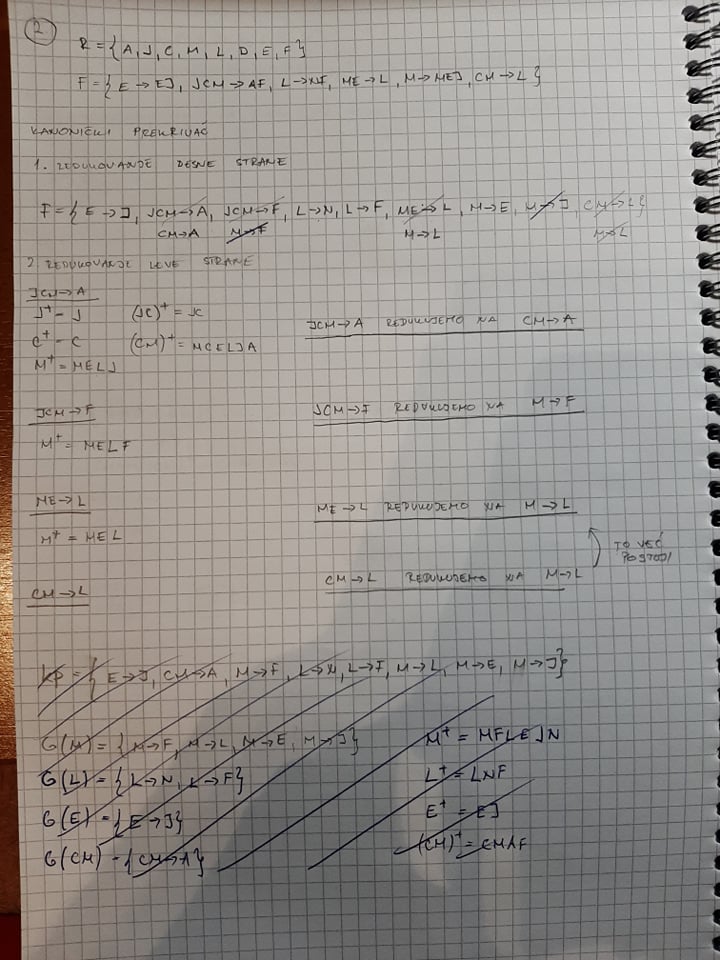 2
R = { A, J, C, M, L, D, E, F }
F = { E → EJ, JCM → AF, L → NF, ME → L, M → MEJ, CM → L }
KANONIČKI PREKRIVAČ
1. REDUKOVANJE DESNE STRANE
F = { E → J, JCM → A, JCM → F, L → N, L → F, ME → L, M → E, M → J, CM → L }
CM → A M → F M → L M → L
2. REDUKOVANJE LEVE STRANE
JCM → A
J⁺ = J (JC)⁺ = JC
JCM → A REDUKUJEMO NA CM → A
C⁺ = C (CM)⁺ = MCELJA
M⁺ = MELJ
JCM → F JCM → F REDUKUJEMO NA M → F
M⁺ = MELF
ME → L ME → L REDUKUJEMO NA M → L
M⁺ = MEL
TO VEĆ
POSTOJI
CM → L CM → L REDUKUJEMO NA M → L
KP = { E → J, CM → A, M → F, L → N, L → F, M → L, M → E, M → J }
G(M) = { M → F, M → L, M → E, M → J } M⁺ = MFLEJN
G(L) = { L → N, L → F } L⁺ = LNF
G(E) = { E → J } E⁺ = EJ
G(CM) = { CM → A } (CM)⁺ = CMAF